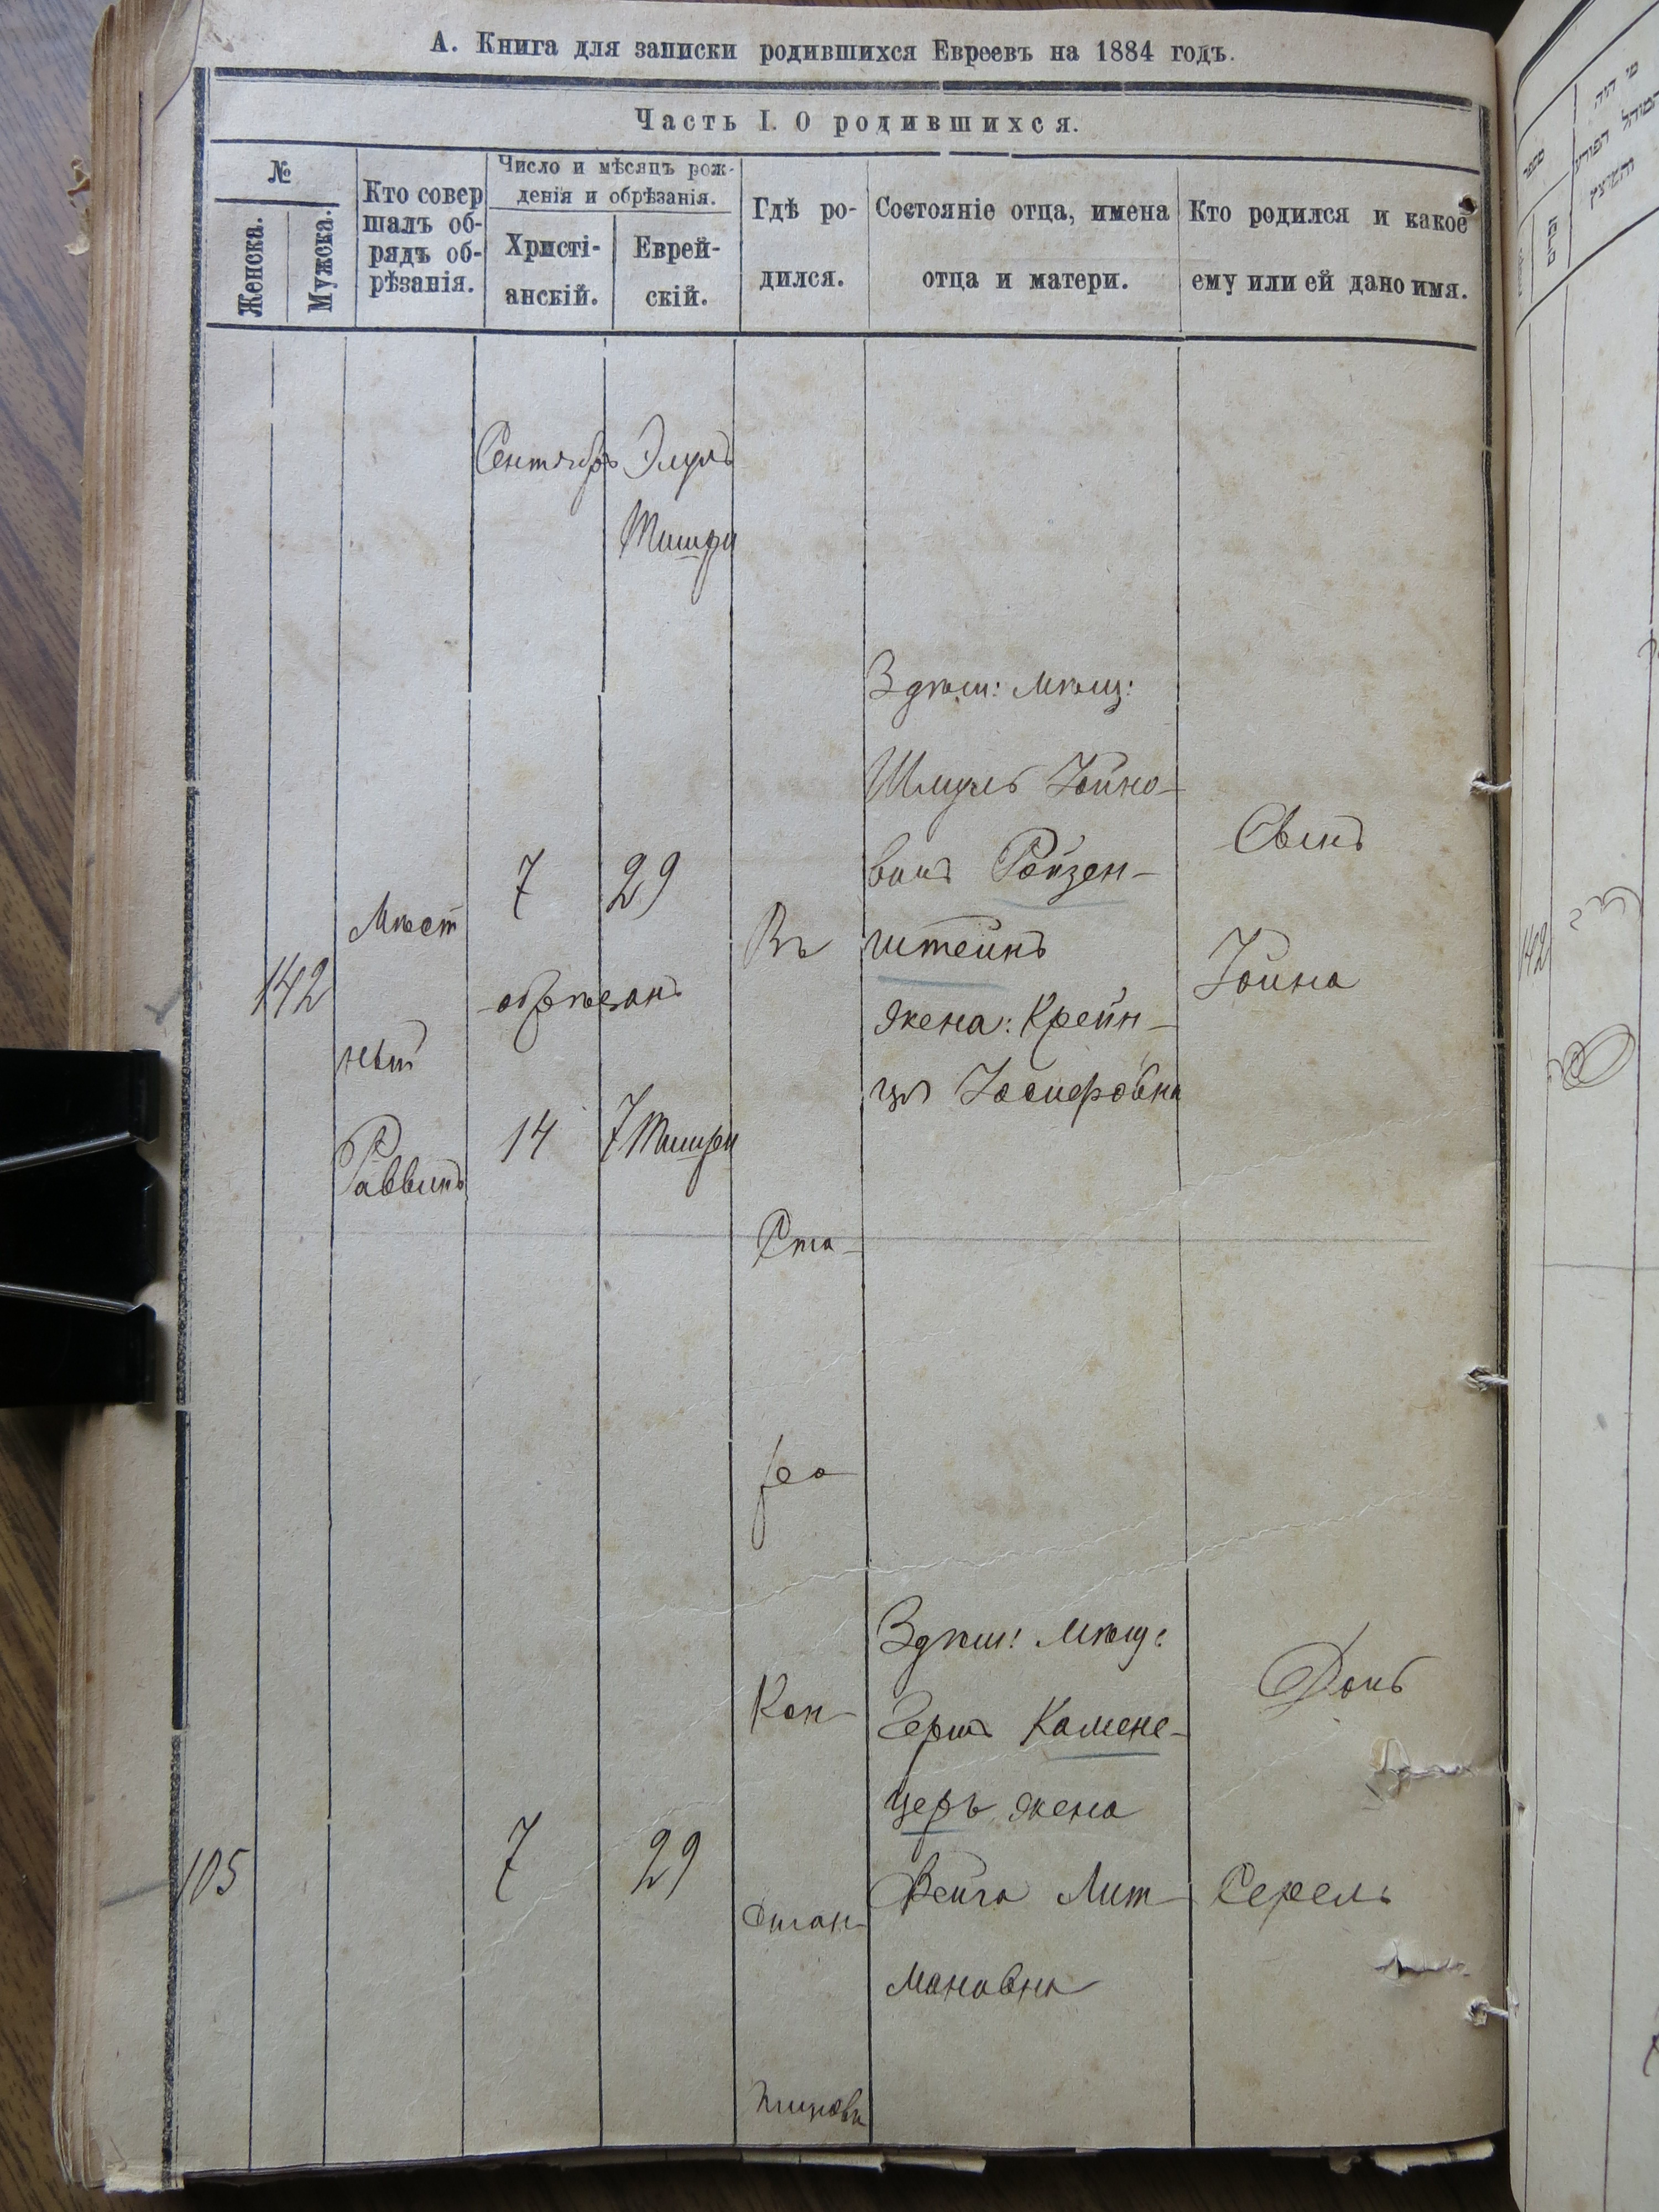 А. Книга для записки родившихся Евреевъ на 1884 годъ.
Часть I. О родившихся.
№
Женска.
Мужска.
Кто совер
шалъ об-
рядъ об-
рѣзанія.
Число и мѣсяцъ рож-
денія и обрѣзанія.
Христі-
анскій.
Еврей-
скій.
Гдѣ ро-
дился.
Состояніе отца, имена
отца и матери.
Кто родился и какое
ему или ей дано имя.
Сентябрь
Элулъ
Тишри
142
Мѣст
ный
Раввинъ
7
29
обрѣзанъ
14
7 Тишри
Въ
Ста-
ро
Кон-
стан-
тиновѣ
Здѣш: мѣщ:
Шмуль Іойно-
вичъ Ройзен-
штейнъ
жена: Крейн-
ця Іосифовна
Сынъ
Іойна
105
7
29
Здѣш: мѣщ:
Гершъ Камене-
церъ жена
Фейга Лит-
мановна
Дочь
Серель
142